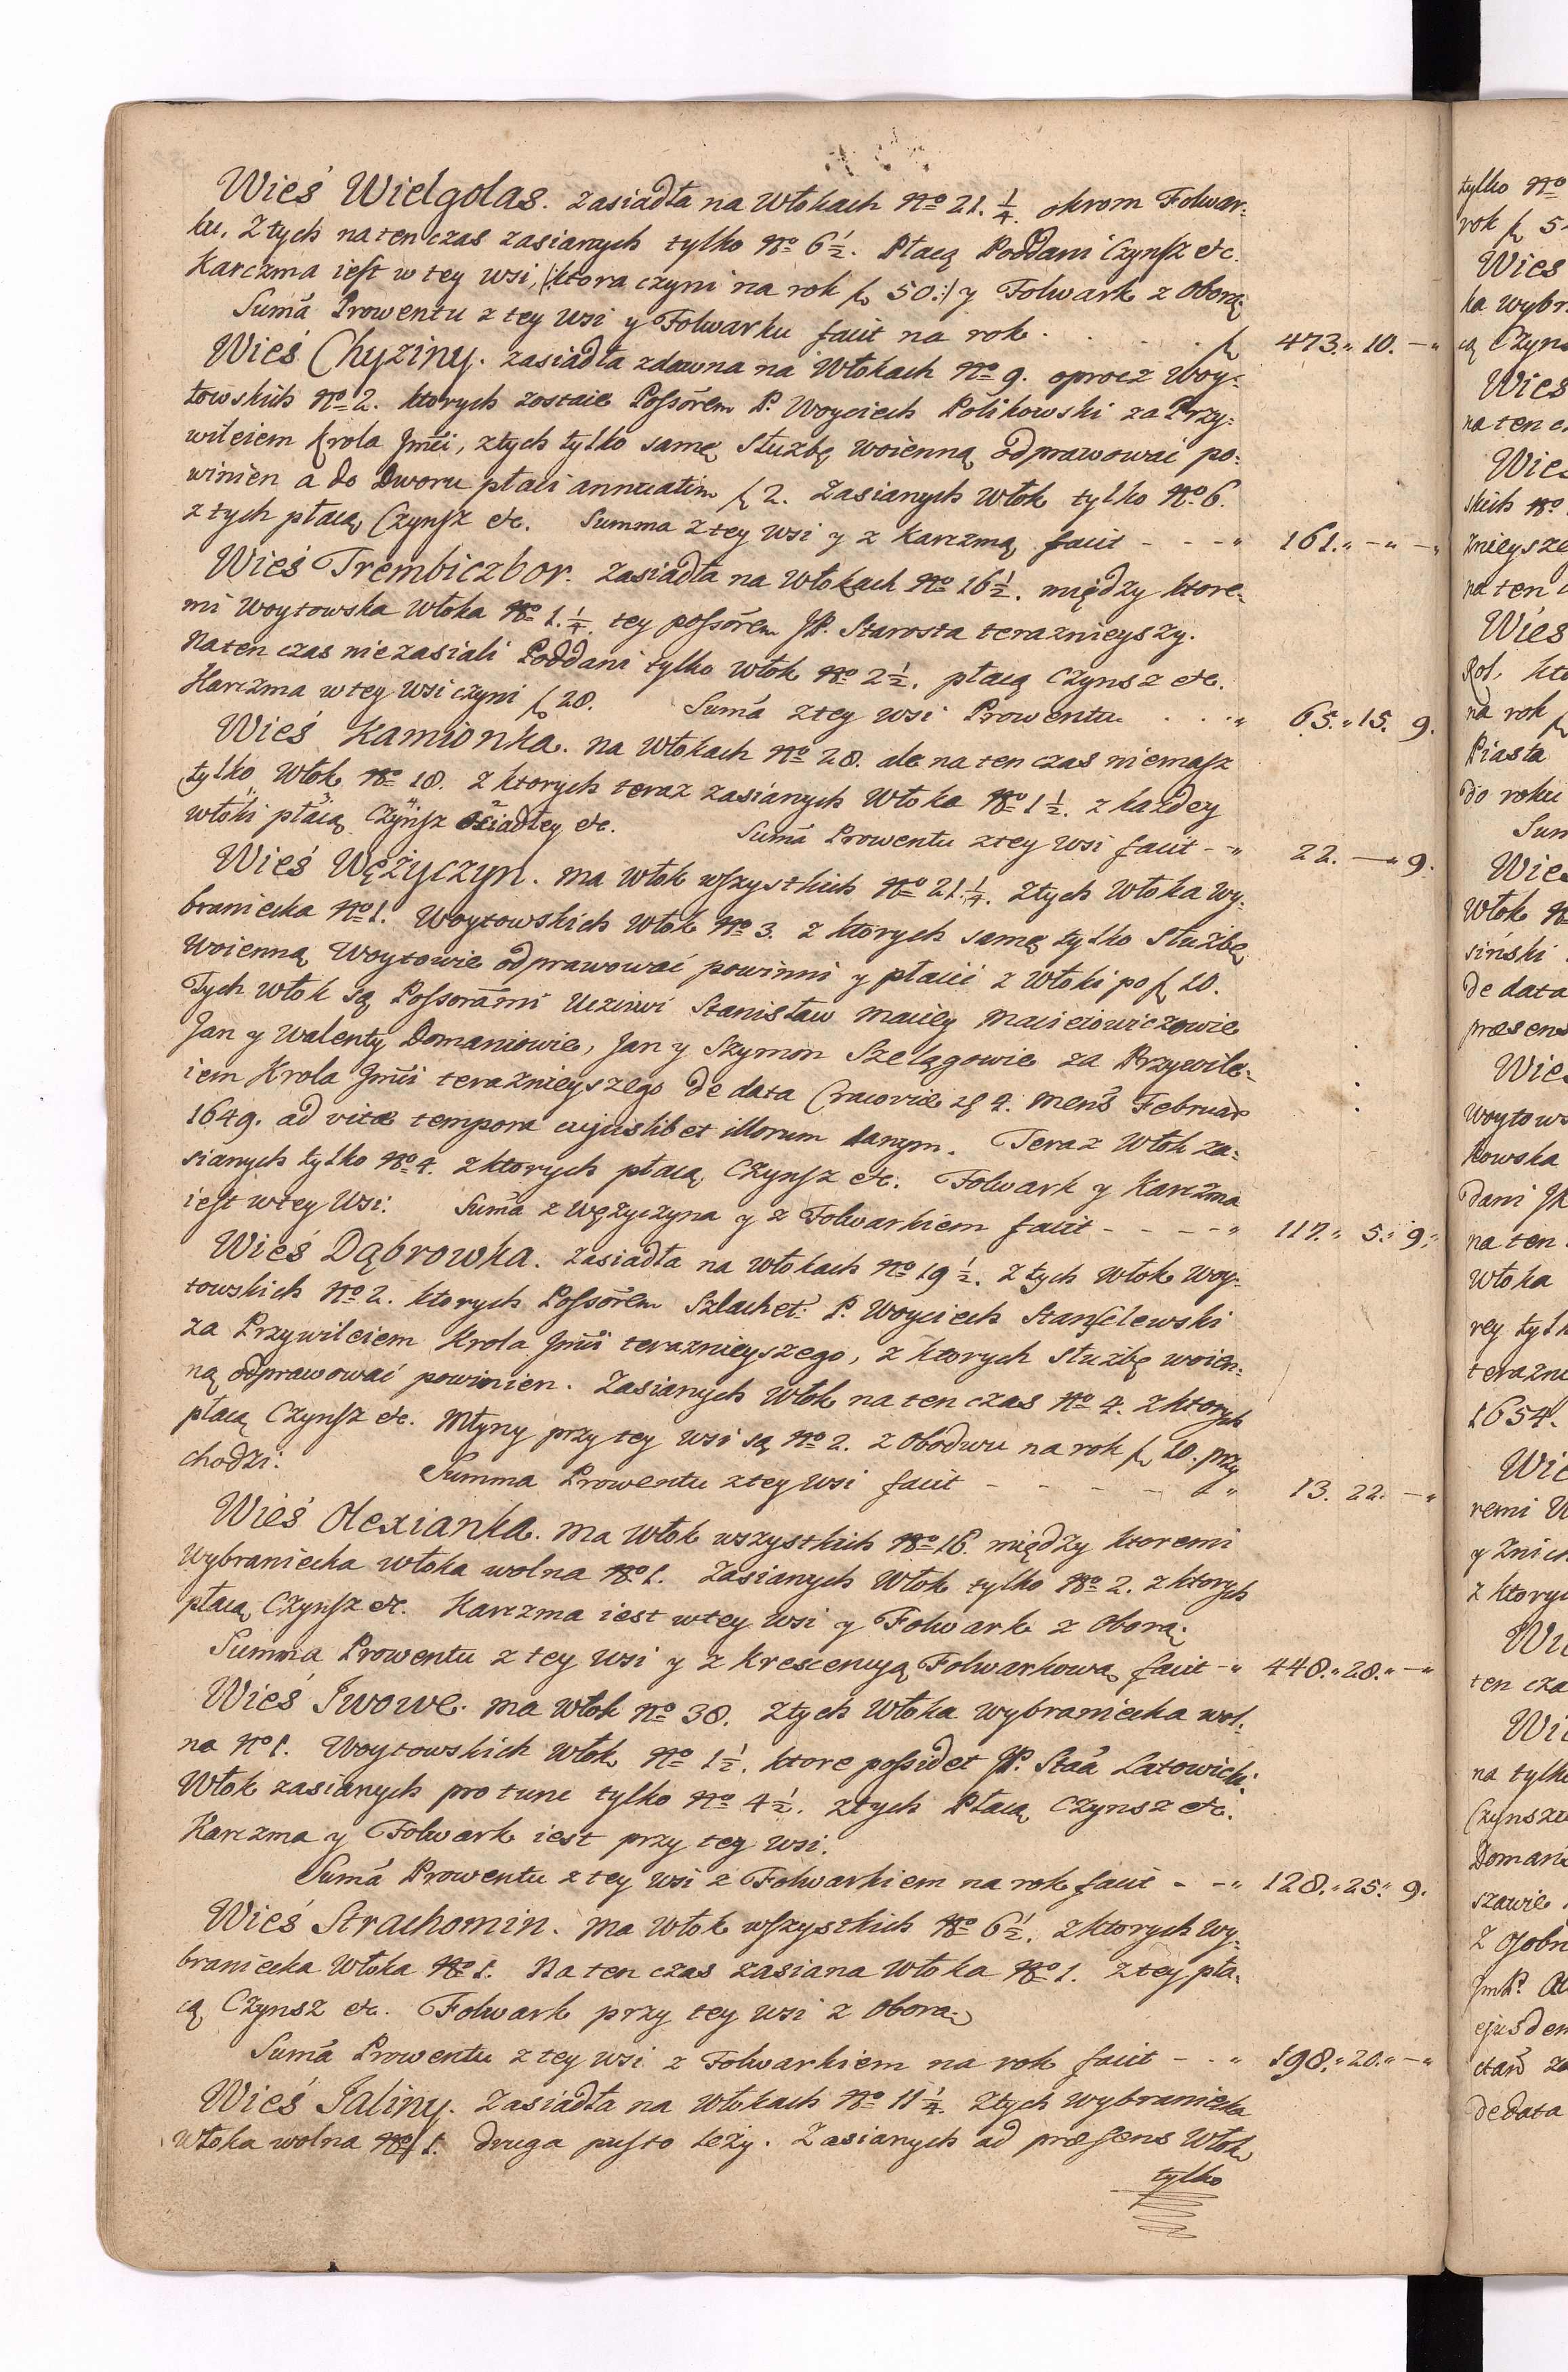 Wieś Wielgolas. zasiadła na Włokach No 21. 1/4. okrom Folwar:
ku. Z tych na ten czas zasianych tylko No 6 1/2. Płacą Poddani Czynsz etc.
Karczma iest w tey wsi, /:ktora czyni na rok f 50:/ y Folwark z Oborą
Suma Prowentu z tey Wsi y Folwarku facit na rok . . . . . f 473.,, 10. —,,
Wieś Chyziny. zasiadła zdawna na Włokach No 9. oprocz Woy:
towskich No 2. ktorych zostaie Possorem P. Woyciech Polikowski za Przy:
wileiem Krola Jmci, z tych tylko samę Służbę Woienną odprawować po:
winien a do Dworu płaci annuatim f 2. Zasianych Włok tylko No 6.
z tych płacą Czynsz etc. Summa z tey Wsi y z Karczmą facit - - - ,, 161.,, —,, —,,
Wieś Trembiczbor. zasiadła na Włokach No 16 1/2. między ktore:
mi Woytowska Włoka No 1. 1/4. tey possorem JP. Starosta teraznieyszy.
Na ten czas niezasiali Poddani tylko Włok No 2 1/2. płacą Czynsz etc.
Karczma w tey Wsi czyni f 20. Suma z tey Wsi Prowentu . . . ,, 65.,, 15. 9.
Wieś Kamionka. na Włokach No 28. ale na ten czas niemasz
tylko Włok No 18. z ktorych teraz zasianych Włoka No 1 1/2. z każdey
włoki płacą Czynsz osiadłey etc. Suma Prowentu z tey Wsi facit - ,, 22. —,, 9.
Wieś Wężyczyn. ma Włok wszystkich No 21. 1/4. z tych Włoka wy:
braniecka No 1. Woytowskich Włok No 3. z ktorych samę tylko Służbę
Woienną Woytowie odprawować powinni y płacić z Włoki po f 10.
Tych Włok są Possorami Uczciwi Stanisław Maciey Macieiowiczowie
Jan y Walenty Domaniowie, Jan y Szymon Szelągowie za Przywile:
iem Krola Jmci teraznieyszego de data Cracoviæ 4. Mens Februar
1649. ad vitæ tempora cujuslibet illorum danym. Teraz Włok za:
sianych tylko No 4. z ktorych płacą Czynsz etc. Folwark y Karczma
iest w tey Wsi: Suma z Wężyczyna y z Folwarkiem facit - - - - ,, 117.,, 5.,, 9.,,
Wieś Dąbrowka. zasiadła na Włokach No 19 1/2. z tych Włok Woy:
towskich No 2. ktorych Possorem Szlachet: P. Woyciech
za Przywileiem Krola Jmci teraznieyszego, z ktorych służbę woien:
ną odprawować powinien. Zasianych Włok na ten czas No 4. z ktorych
płacą Czynsz etc. Młyny przy tey Wsi są No 2. z Obodwu na rok f 10. przy
chodzi: Summa Prowentu z tey Wsi facit - - - - - ,, 13. 22. —,,
Wieś Olexianka. Ma Włok wszystkich No 18. między ktoremi
Wybraniecka Włoka wolna No 1. Zasianych Włok tylko No 2. z ktorych
płacą Czynsz etc. Karczma iest w tey Wsi y Folwark z Oborą.
Summa Prowentu z tey Wsi y z Krescencyą Folwarkową facit - ,, 448.,, 28.,, —,,
Wieś Jwowe. ma Włok No 38. z tych Włoka wybraniecka wol:
na No 1. Woytowskich Włok No 1 1/2. ktore possidet JP. Staa Latowicki.
Włok zasianych pro tunc tylko No 4 1/2. z tych Płacą Czynsz etc.
Karczma y Folwark iest przy tey Wsi.
Suma Prowentu z tey Wsi z Folwarkiem na rok facit - - ,, 128.,, 25.,, 9.
Wieś Strachomin. Ma Włok wszystkich No 6 1/2. z ktorych Wy:
braniecka Włoka No 1. Na ten czas zasiana Włoka No 1. z tey pła:
cą Czynsz etc. Folwark przy tey Wsi z Oborą.
Suma Prowentu z tey Wsi z Folwarkiem na rok facit - - ,, 198.,, 20.,, —,,
Wieś Jaliny. Zasiadła na Włokach No 11 1/4. z tych Wybraniecka
Włoka wolna No 1. druga pusto leży. Zasianych ad præsens Włok
tylko
tylko No
rok f
Wieś
ka wybr
cą Czyns
Wieś
na ten c
Wieś
skich No
znieysze
na ten
Wieś
Rol. kto
na rok f
Piasta
do roku
Sum
Wieś
Włok
siński
de data
præsens
Wieś
Woytows
kowska
dani
na ten
Włoka
rey tylk
terazni
1654.
Wie
remi
y z nich
z ktorych
Wie
ten cza
Wie
na tylko
Czynszu
Domani
szawie
de data